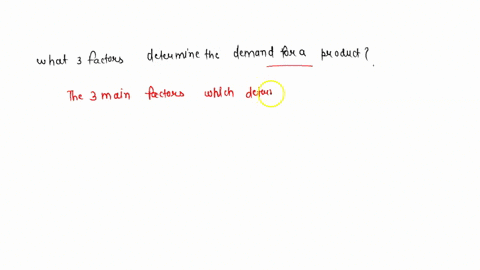 what 3 factors determine the demand for a product?
The 3 main factors which